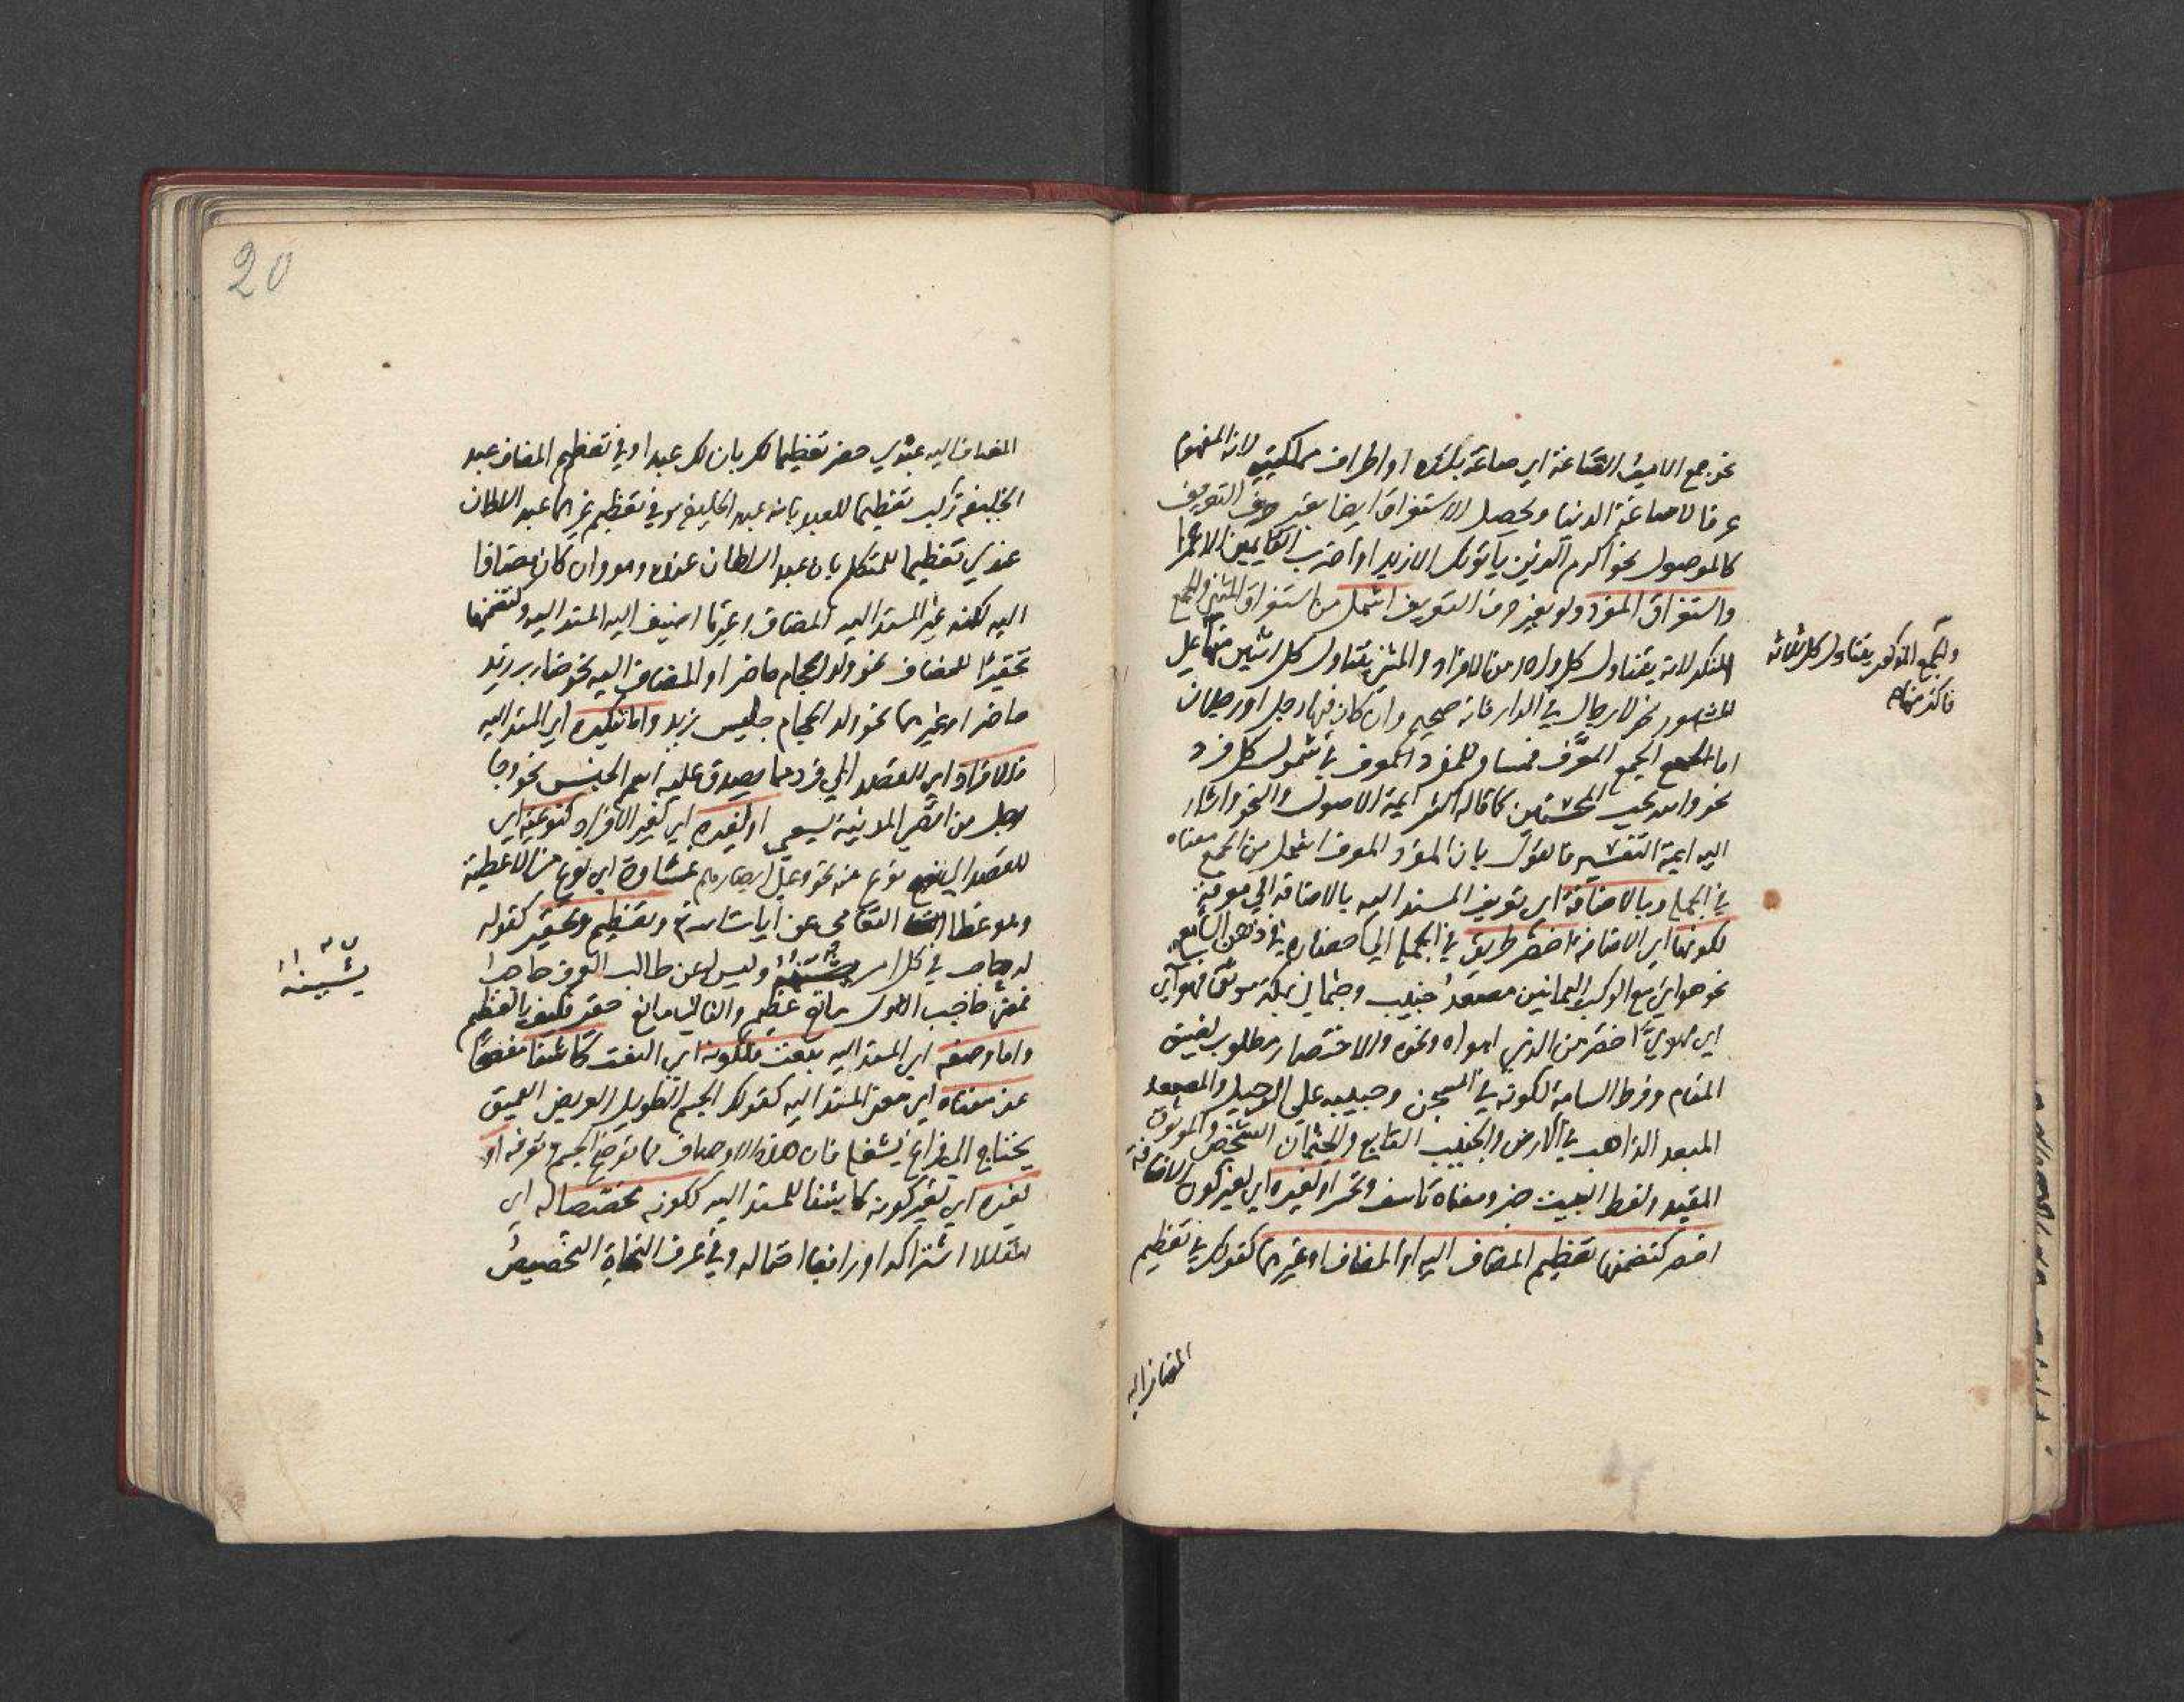 نحو جمع الامير الصاغة اي صاغة بلده او اطراف مملكته لانه المفهوم
عرفا لا صاغة الدنيا ويحصل الاستغراق ايضا بغير حرف التعريف
كالموصول نحو اكرم الذين يأتونك الا زيدا واضرب القايمين الا عمرا
واستغراق المفرد ولو بغير حرف التعريف اشمل من استغراق المثنى والجمع
المنكر لانه يتناول كل واحد من الافراد والمثنى يتناول كل اثنين منها
والجمع المذكور يتناول كل ثلاثة
فاكثر منها
المشهور نحو لا رجال في الدار فانه صحيح وان كان فيها رجل او رجلان
اما الجمع المعرف فمساو للمفرد المعرف في شمول كل فرد
نحو والله يحب المحسنين كما قاله اكثر ايمة الاصول والنحو واشار
اليه ايمة التفسير فالقول بان المفرد المعرف اشمل من الجمع معناه
في الجملة وبالاضافة اي تعريف المسند اليه بالاضافة الي معرفة
لكونها اي الاضافة اخصر طريق في الجملة الي احضاره في ذهن السامع
نحو هواي مع الركب اليمانين مصعد جنيب وجثماني بمكة موثق فهواي
اي مهويي اخصر من الذي اهواه ونحوه والاختصار مطلوب لضيق
المقام وفرط السآمة لكونه في السجن وحبيبه علي الرحيل والمصعد
المبعد الذاهب في الارض والجنيب التابع والجثمان الشخص والموثوق
المقيد ولفظ البيت خبر ومعناه تاسف وتحسر او لغيره اي لغير كون الاضافة
اخصر كتضمنها تعظيم المضاف اليه او المضاف او غيرهما كقولك في تعظيم
المضاف اليه
20
المضاف اليه عبدي حضر تعظيما لك بان لك عبدا وفي تعظيم المضاف عبد
الخليفة ركب تعظيما للعبد بانه عبد الخليفة وفي تعظيم غيرهما عبد السلطان
عندي تعظيما للمتكلم بان عبد السلطان عنده وهو وان كان مضافا
اليه لكنه غير المسند اليه المضاف وغير ما اضيف اليه المسند اليه ولتضمنها
تحقيرا للمضاف نحو ولد الحجام حاضر او المضاف اليه نحو ضارب زيد
حاضر او غيرهما نحو ولد الحجام جليس زيد واما تنكيره اي المسند اليه
فللافراد اي للقصد الي فرد مما يصدق عليه اسم الجنس نحو وجا
رجل من اقصي المدينة يسعي او لغيره اي لغير الافراد كنوعية اي
للقصد الي نوع منه نحو وعلي ابصارهم غشاوة اي نوع من الاغطية
وهو غطا التعامي عن آيات الله وتعظيم وتحقير كقوله
له حاجب في كل امر يشينه وليس له عن طالب العرف حاجب
يشينه
فمعني حاجب الاول مانع عظيم والثاني مانع حقير فكيف بالعظيم
واما وصفه اي المسند اليه بنعت فلكونه اي النعت كاشفا مفصحا
عن معناه اي معني المسند اليه كقولك الجسم الطويل العريض العميق
يحتاج الي فراغ يشغله فان هذه الاوصاف مما توضح الجسم وتعرفه او
لغيره اي لغير كونه كاشفا للمسند اليه ككونه مخصصا له اي
مقللا اشتراكه او رافعا احتماله وفي عرف النحاة التخصيص